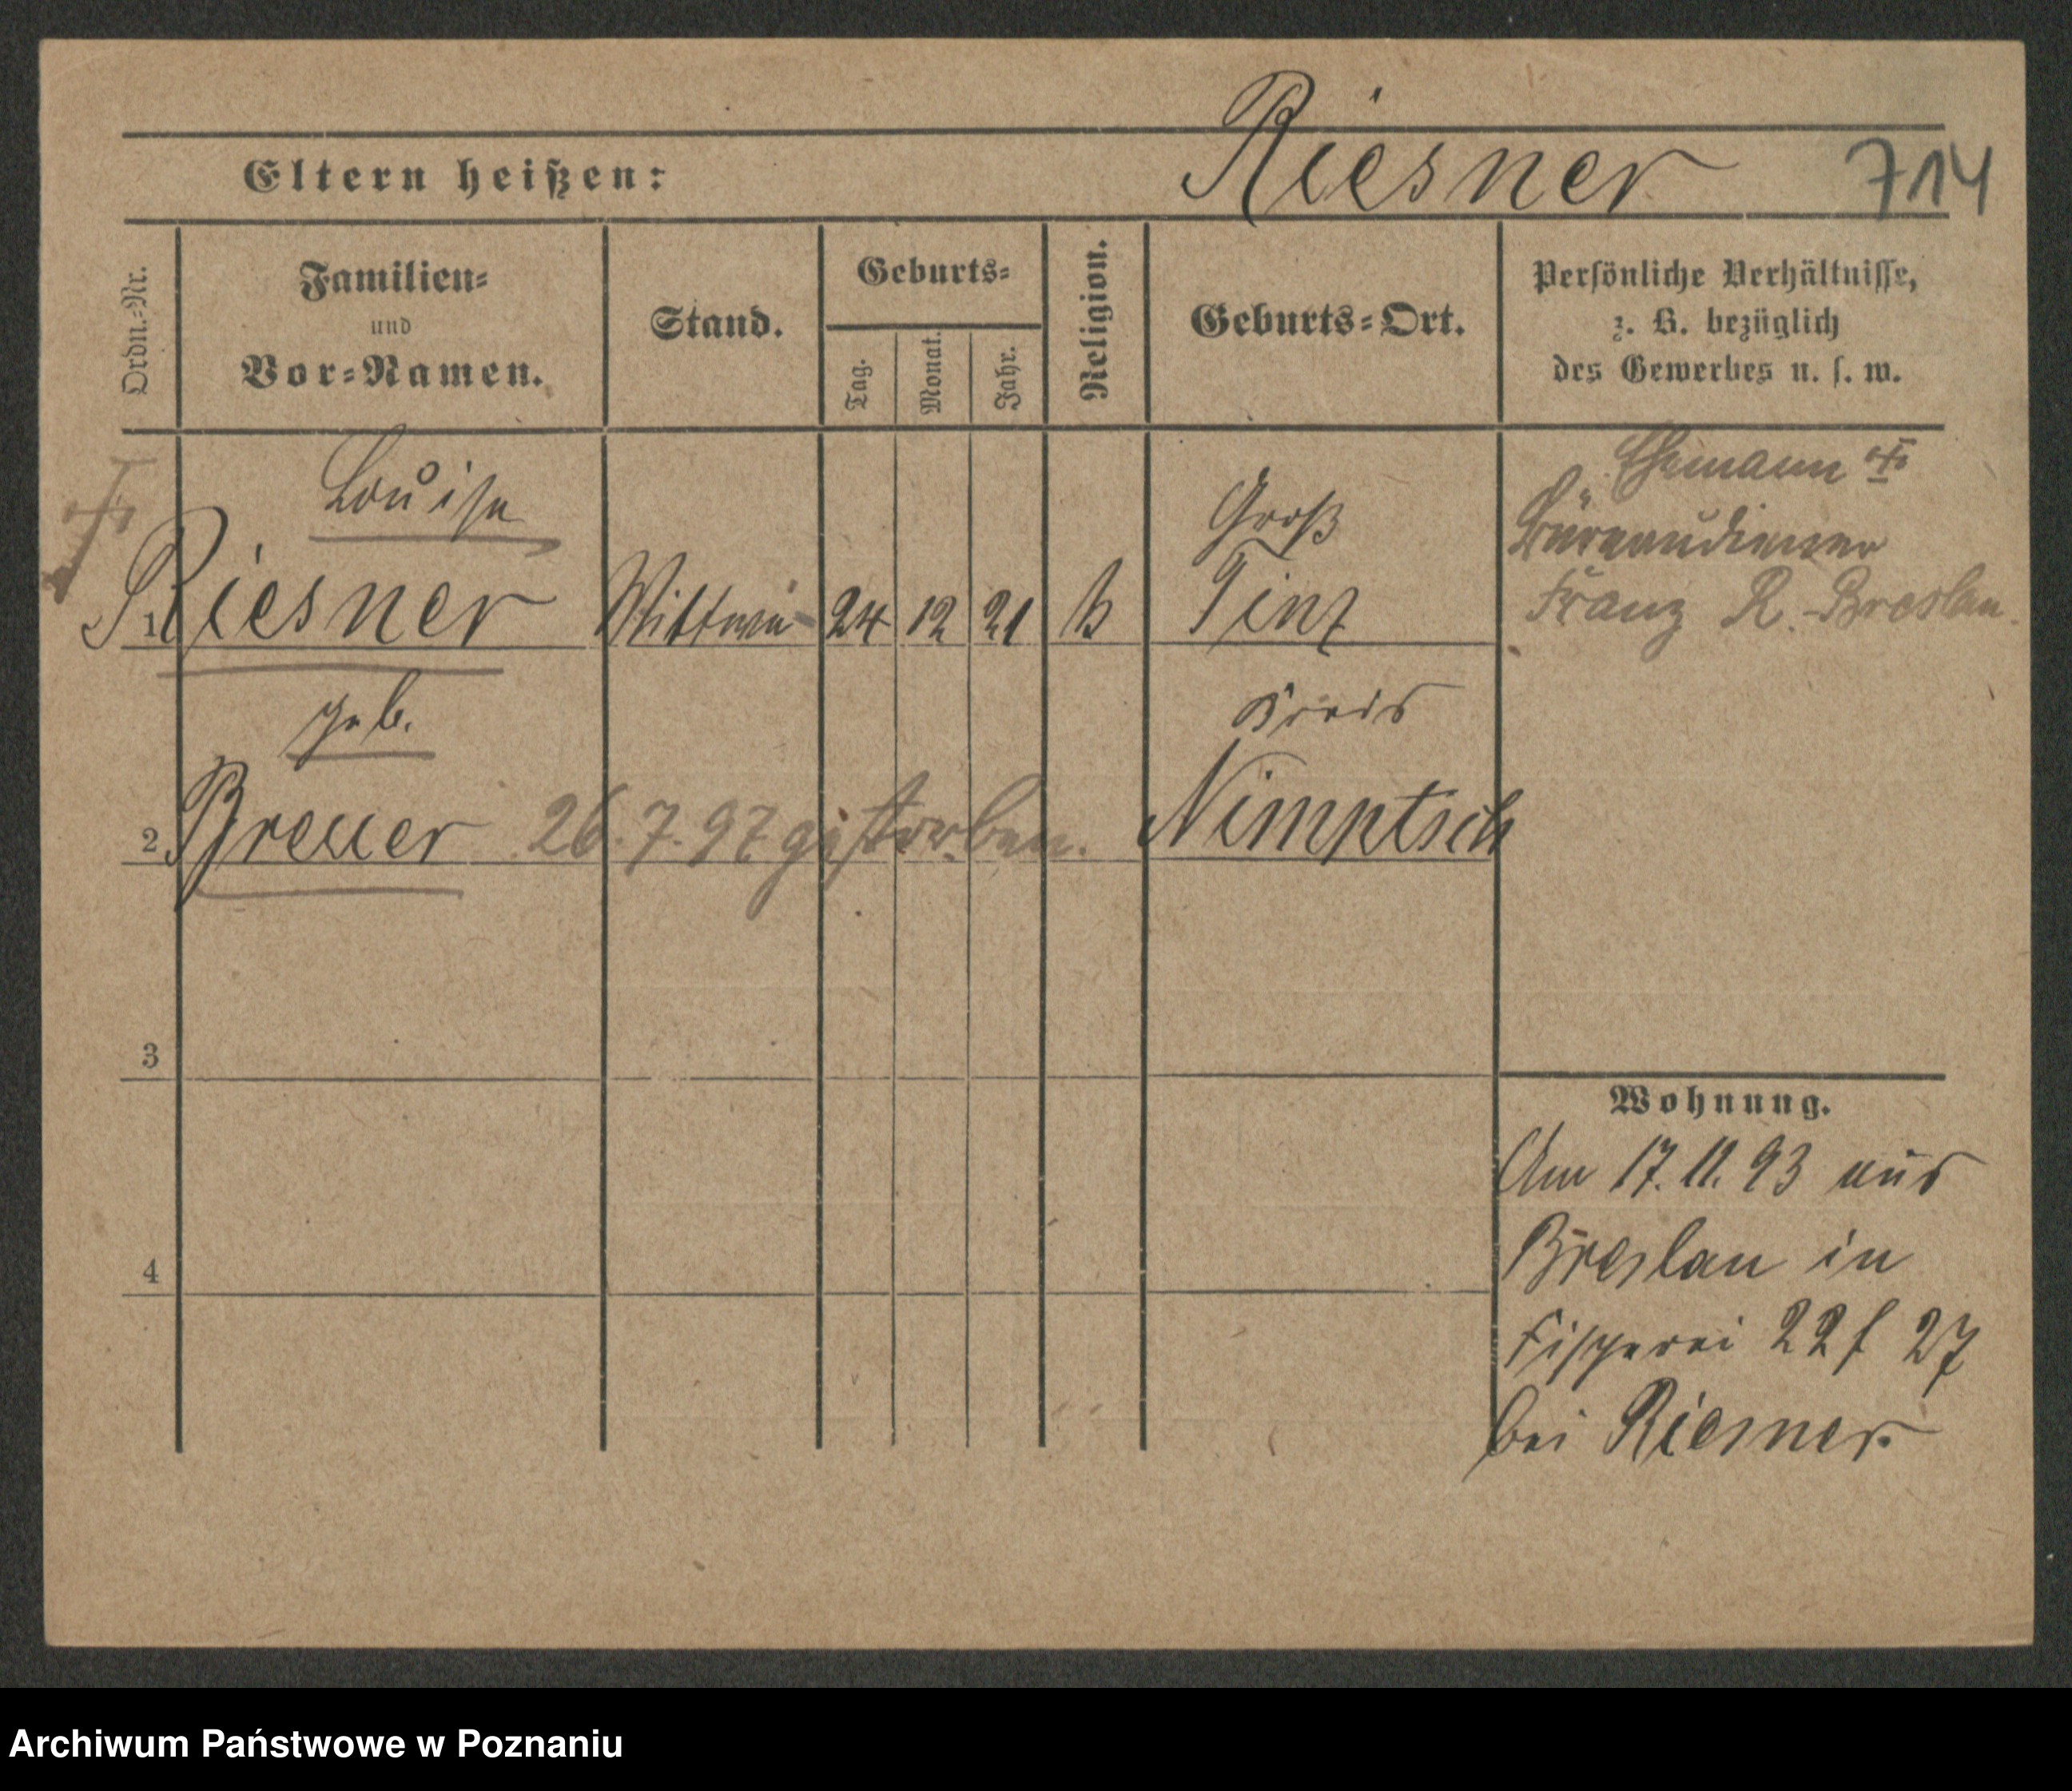 Riesner 714
Eltern heißen:
Ordn.-Nr.
Familien-
und
Vor-Namen.
Stand.
Geburts-
Tag.
Monat.
Jahr.
Religion.
Geburts-Ort.
Persönliche Verhältnisse,
z. B. bezüglich
des Gewerbes u. s. w.
Louise
1 Riesner Wittwe 24 12 21 Groß
Tinz
geb. Kreis
2 Breuer 26.7.97 gestorben. Nimptsch
Ehemann †
Büreaudiener
Franz R.-Breslau.
3
4
Wohnung.
Am 17.11.93 aus
Breslau in
Fischerei 22f 27
bei Riesner.
Archiwum Państwowe w Poznaniu